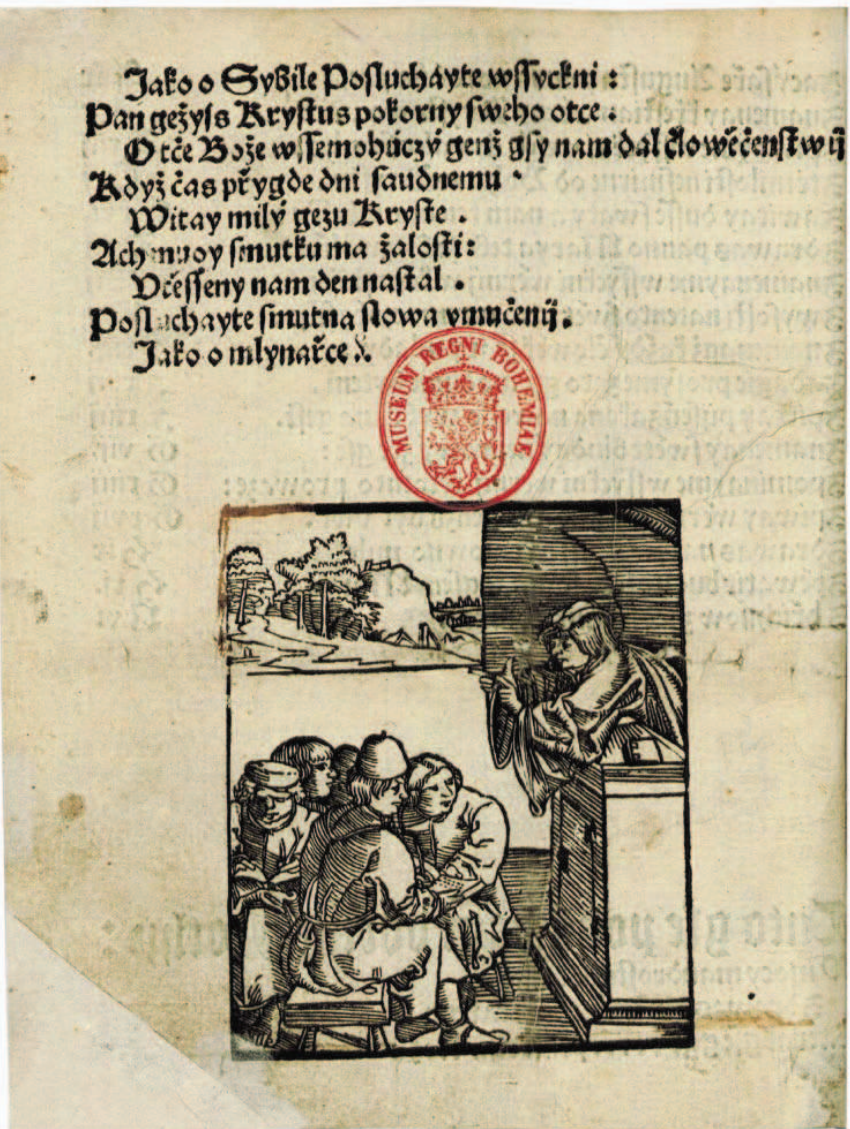 Jako o Sybile Posluchayte wssyckni :
Pan gežyss Krystus pokorny sweho otce .
O tče Bože wssemohúczý genž gsy nam dal člowěčenstwij
Když čas přygde dni saudnemu .
Witay milý gezu Kryste .
Ach muoy smutku ma žalosti:
Včesseny nam den nastal .
Posluchayte smutna slowa vmučenij .
Jako o mlynařce
MUSEUM REGNI BOHEMIAE